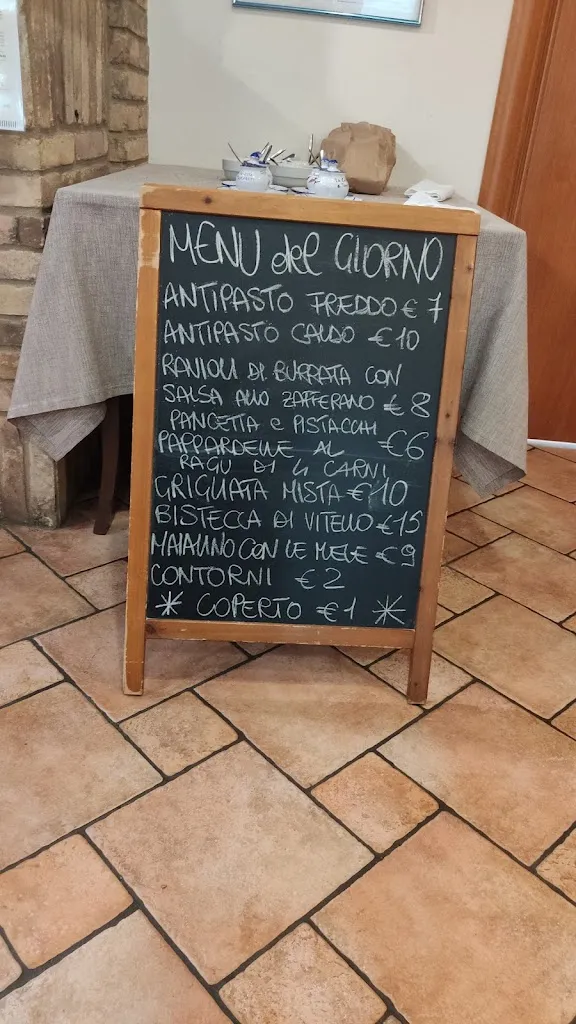 MENU del GIORNO
ANTIPASTO FREDDO € 7
ANTIPASTO CALDO € 10
RAVIOLI DI BURRATA CON
SALSA ALLO ZAFFERANO € 8
PANCETTA e PISTACCHI
PAPPARDELLE AL €6
RAGU DI 4 CARNI
GRIGLIATA MISTA €10
BISTECCA DI VITELLO €15
MAIALINO CON LE MELE €9
CONTORNI €2
* COPERTO €1 *